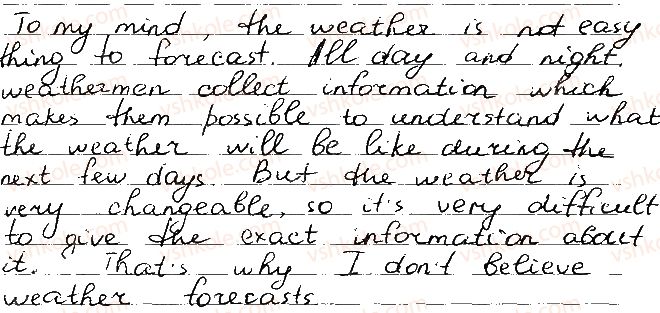 To my mind, the weather is not easy
thing to forecast. All day and night,
weathermen collect information which
makes them possible to understand what
the weather will be like during the
next few days. But the weather is
very changeable, so it's very difficult
to give the exact information about
it. That's why I don't believe
weather forecasts